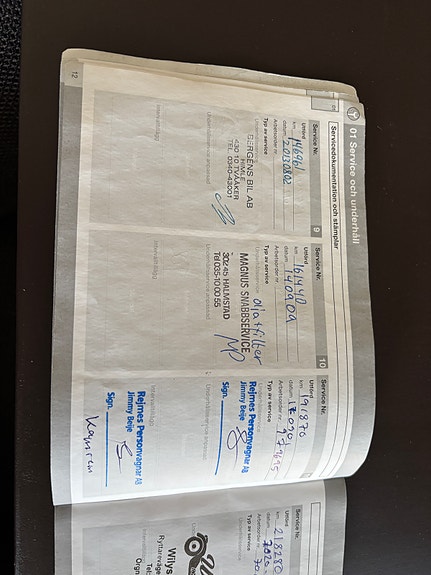 01 Service och underhåll
Servicedokumentation och stämplar
Service Nr. 9
Utförd
km 146961
datum 20130802
Arbetsorder nr
Typ av service
BERGENS BIL AB
430 10 TVÅÅKER
TEL. 0340-43001
Service Nr. 10
Utförd
km 161440
datum 140909
Arbetsorder nr
Typ av service
olja+filter
MAGNUS SNABBSERVICE
302 45 HALMSTAD
Tel 035-10 00 55
Service Nr.
Utförd
km 191870
datum
Arbetsorder nr
Typ av service
Rejmes Personvagnar AB
Jimmy Beije
Sign.
Rejmes Personvagnar AB
Jimmy Beije
Sign.
Kamrem
12
Service Nr.
Utförd
km 218280
datum
Arbetsorder nr
Typ av service
Ryttarevägen